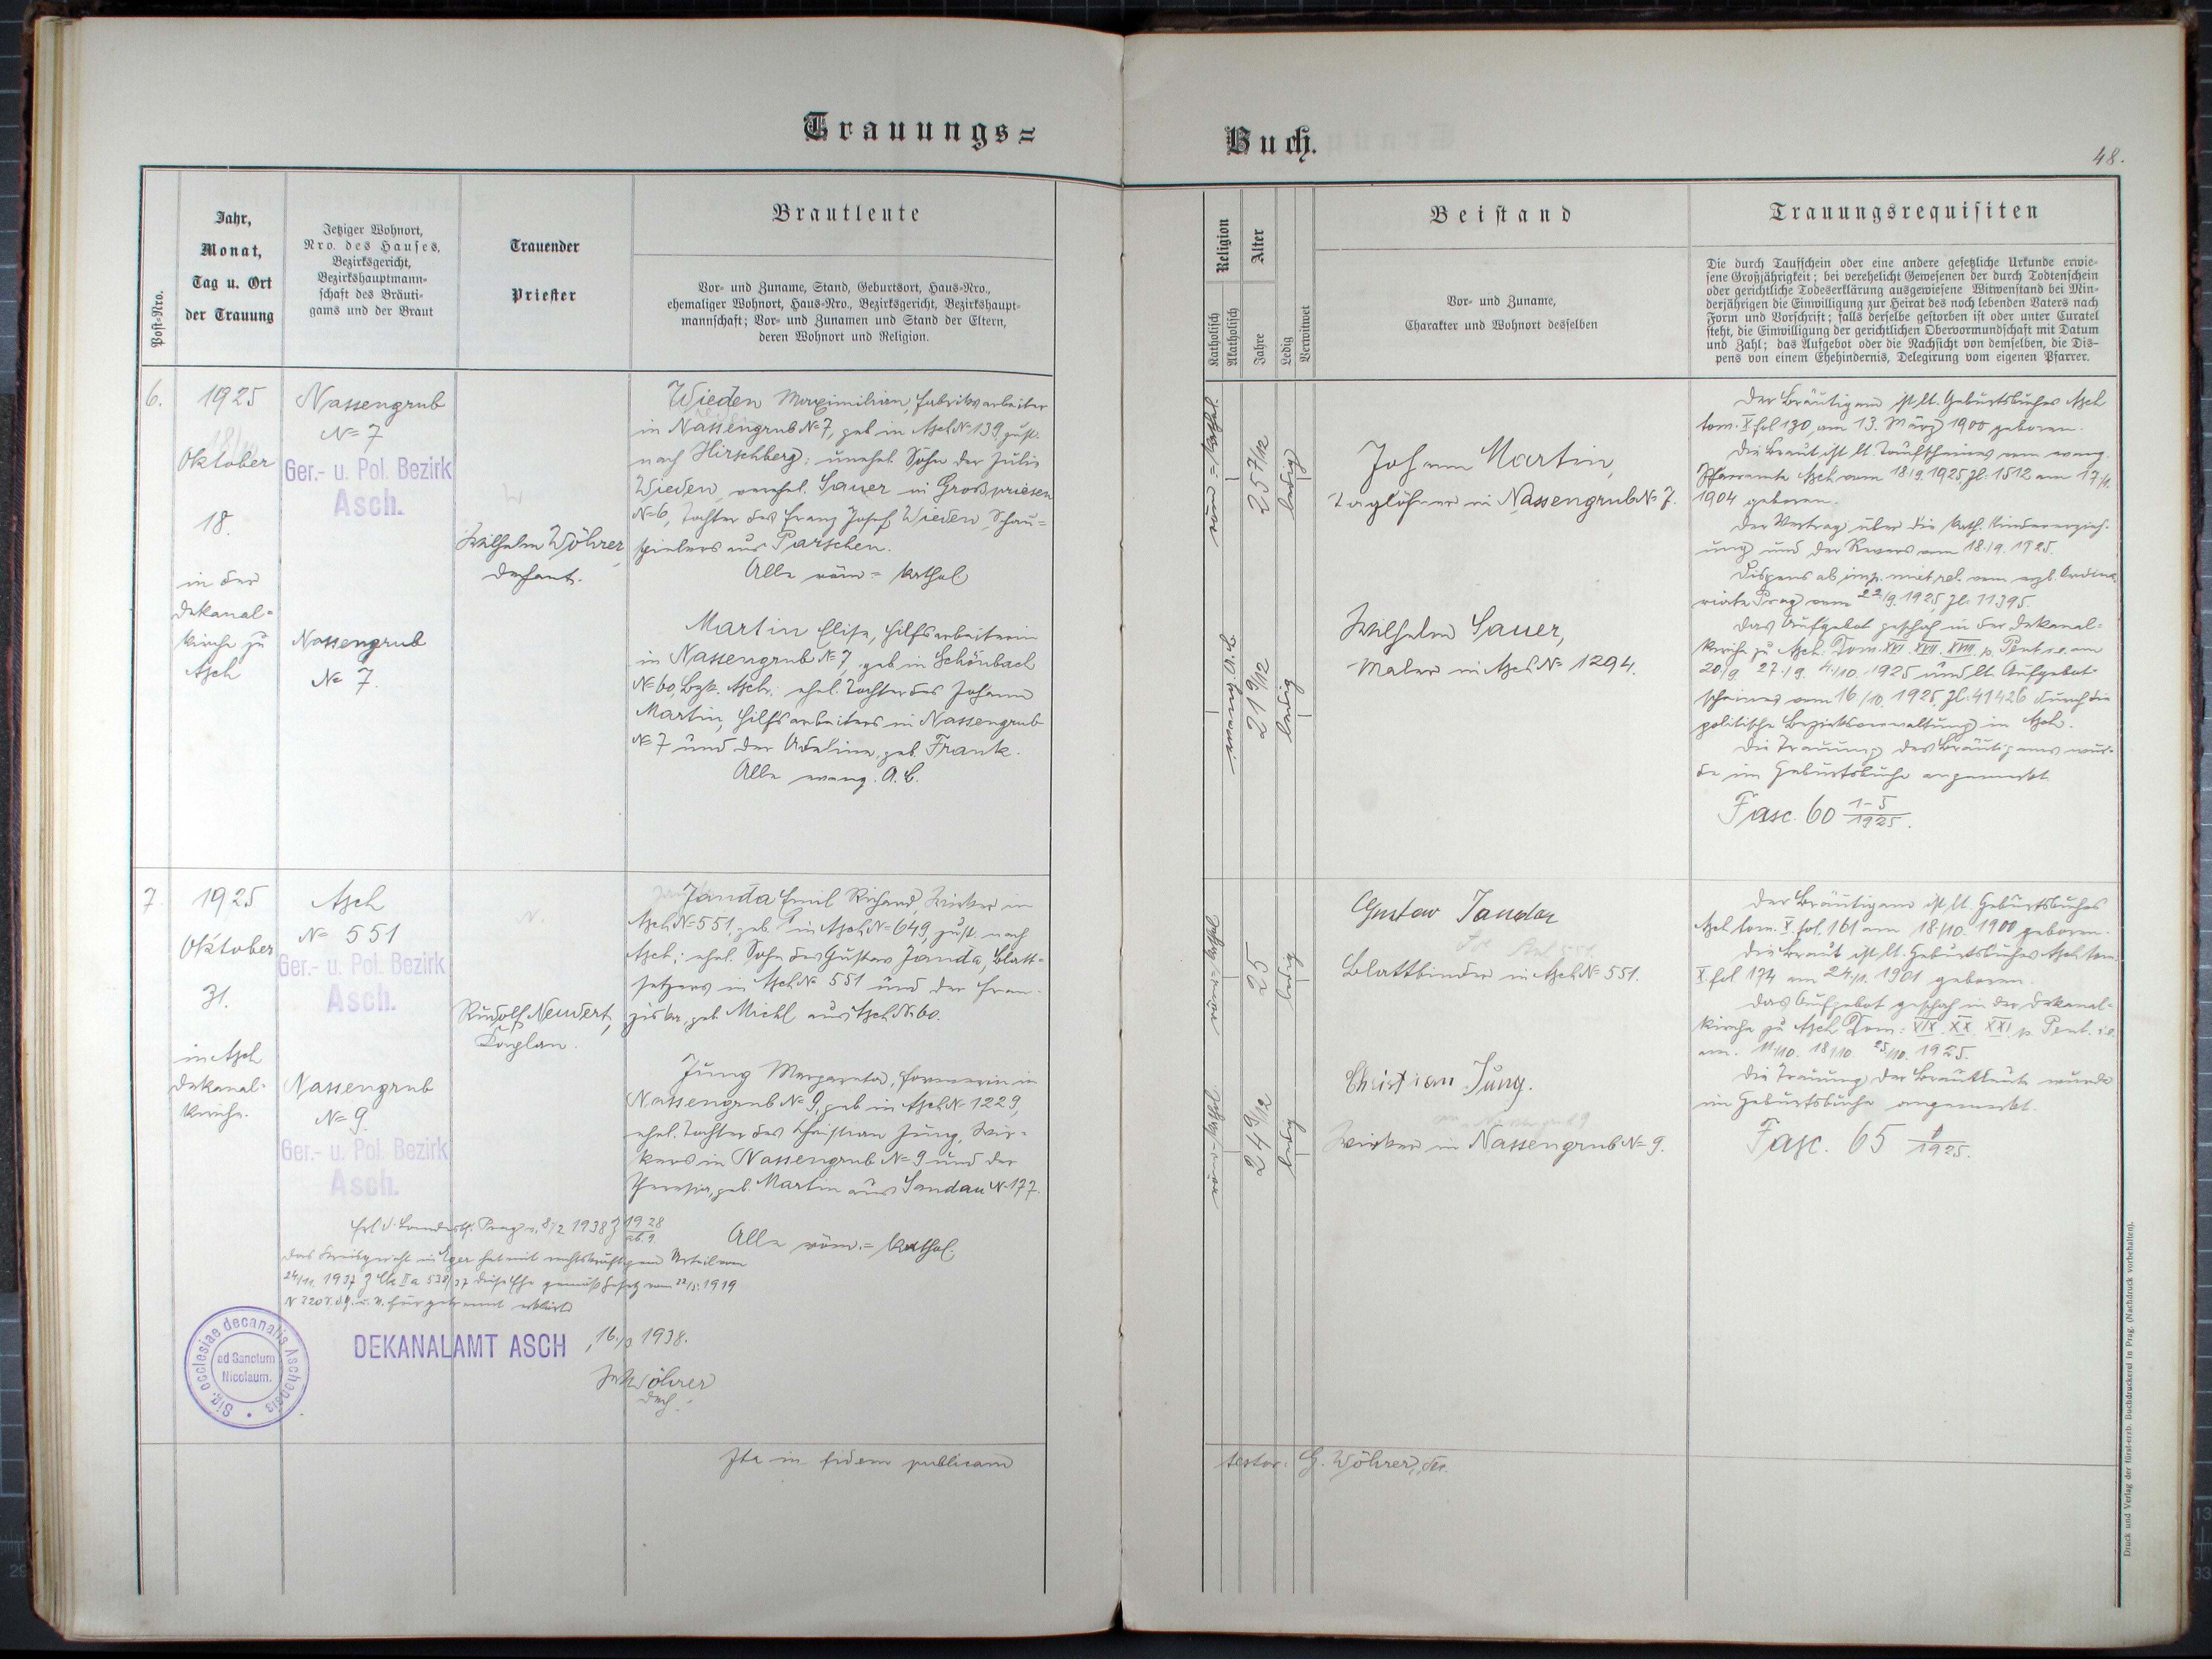 Trauungs=
Buch.
48.
Post-Nro.
Jahr,
Monat,
Tag u. Ort
der Trauung
Jetziger Wohnort,
Nro. des Hauses,
Bezirksgericht,
Bezirkshauptmann-
schaft des Bräuti-
gams und der Braut
Trauender
Priester
Brautleute
Vor- und Zuname, Stand, Geburtsort, Haus-Nro.,
ehemaliger Wohnort, Haus-Nro., Bezirksgericht, Bezirkshaupt-
mannschaft; Vor- und Zunamen und Stand der Eltern,
deren Wohnort und Religion.
Religion
Katholisch
Akatholisch
Alter
Jahre
Ledig
Verwitwet
Beistand
Vor- und Zuname,
Charakter und Wohnort desselben
Trauungsrequisiten
Die durch Taufschein oder eine andere gesetzliche Urkunde erwie-
sene Großjährigkeit; bei verehelicht Gewesenen der durch Todtenschein
oder gerichtliche Todeserklärung ausgewiesene Witwenstand bei Min-
derjährigen die Einwilligung zur Heirat des noch lebenden Vaters nach
Form und Vorschrift; falls derselbe gestorben ist oder unter Curatel
steht, die Einwilligung der gerichtlichen Obervormundschaft mit Datum
und Zahl; das Aufgebot oder die Nachsicht von demselben, die Dis-
pens von einem Ehehindernis, Delegirung vom eigenen Pfarrer.
6.
1925
Oktober
18.
in der
Dekanal-
kirche zu
Asch
Nassengrub
N= 7
Ger.- u. Pol. Bezirk
Asch.
Nassengrub
N= 7.
Wilhelm Wöhrer,
Dechant.
Wieden Maximilian, Fabriksarbeiter
in Nassengrub N= 7, geb. in Asch N= 139, zust.
nach Hirschberg; unehel. Sohn der Julie
Wieden, verehel. Sauer in Großpriesen
N= 6, Tochter des Franz Josef Wieden, Schau-
spielers aus Parschen.
Alle röm.= kathol.
Martin Elise, Hilfsarbeiterin
in Nassengrub N= 7, geb. in Schönbach
N= 60, Bzk. Asch; ehel. Tochter des Johann
Martin, Hilfsarbeiters in Nassengrub
N= 7 und der Adeline, geb. Frank.
Alle evang. A. C.
röm.= kathol.
25 7/12
ledig
evang. A. C.
21 9/12
ledig
Johann Martin,
Taglöhner in Nassengrub N= 7.
Wilhelm Sauer,
Maler in Asch N= 1294.
Der Bräutigam ist lt. Geburtsbuches Asch
tom. X fol 130, am 13. März 1900 geboren.
Die Braut ist lt. Taufscheines vom evang.
Pfarramte Asch vom 18/9. 1925 Zl. 1512 am
1904 geboren.
Der Vertrag über die kath. Kindererzieh-
ung und der Revers vom 18./9. 1925.
Dispens ab imp. mixt. rel. vom erzb. Ordina-
riate Prag vom 22/9. 1925, Zl. 11395.
Das Aufgebot geschah in der Dekanal-
kirche zu Asch: Dom. XVI. XVII. XVIII. p. Pent. i.e. am
20/9. 27./9. 4./10. 1925 und lt. Aufgebot-
scheines vom 16/10. 1925, Zl. 41426 durch die
politische Bezirksverwaltung in Asch.
Die Trauung des Bräutigams wur-
de im Geburtsbuche angemerkt.
Fasc. 60 1-5/1925.
7.
1925
Oktober
31.
in Asch
Dekanal-
kirche.
Asch
N= 551
Ger.- u. Pol. Bezirk
Asch.
Nassengrub
N= 9.
Ger.- u. Pol. Bezirk
Asch.
Rudolf Neudert,
Kaplan.
Janda Emil Richard, Wirker in
Asch N= 551, geb. in Asch N= 649, zust. nach
Asch; ehel. Sohn des Gustav Janda, Blatt-
setzers in Asch N= 551 und der Fran-
ziska, geb. Michl aus Asch N= 60.
Jung Margareta, Formerin in
Nassengrub N= 9, geb. in Asch N= 1229,
ehel. Tochter des Christian Jung, Wir-
kers in Nassengrub N= 9 und der
Theresia, geb. Martin aus Sandau N= 177.
Alle röm.= kathol.
röm.= kathol.
25
ledig
röm.= kathol.
24 9/12
ledig
Gustav Janda
Blattbinder in Asch N= 551.
Christian Jung.
Wirker in Nassengrub N= 9.
Der Bräutigam ist lt. Geburtsbuches
Asch tom. X. fol. 161 am 18./10. 1900 geboren.
Die Braut ist lt. Geburtsbuches Asch tom.
X. fol 174 am 24./1. 1901 geboren.
Das Aufgebot geschah in der Dekanal-
kirche zu Asch Dom: XIX. XX. XXI. p. Pent. i.e.
am. 11./10. 18./10. 25./10. 1925.
Die Trauung der Brautleute wurde
im Geburtsbuche angemerkt.
Fasc. 65 /1925.
Erl. d. Landesbh. Prag v. 8/2 1938 Z 1928/ab. 9.
Das Kreisgericht in Eger hat mit rechtskräftigem Urteil vom
24/11. 1937 Z Ck IIa 538/37 diese Ehe gemäß Gesetz vom 22/5. 1919
N 320 S. d. G. u. V. für getrennt erklärt.
Sig. ecclesiae decanalis Aschensis
ad Sanctum
Nicolaum.
DEKANALAMT ASCH, 16./3 1938.
Wöhrer
Dech.
Ita in fidem publicam
testor: G. Wöhrer, De.
Druck und Verlag der fürst-erzb. Buchdruckerei in Prag. (Nachdruck vorbehalten).